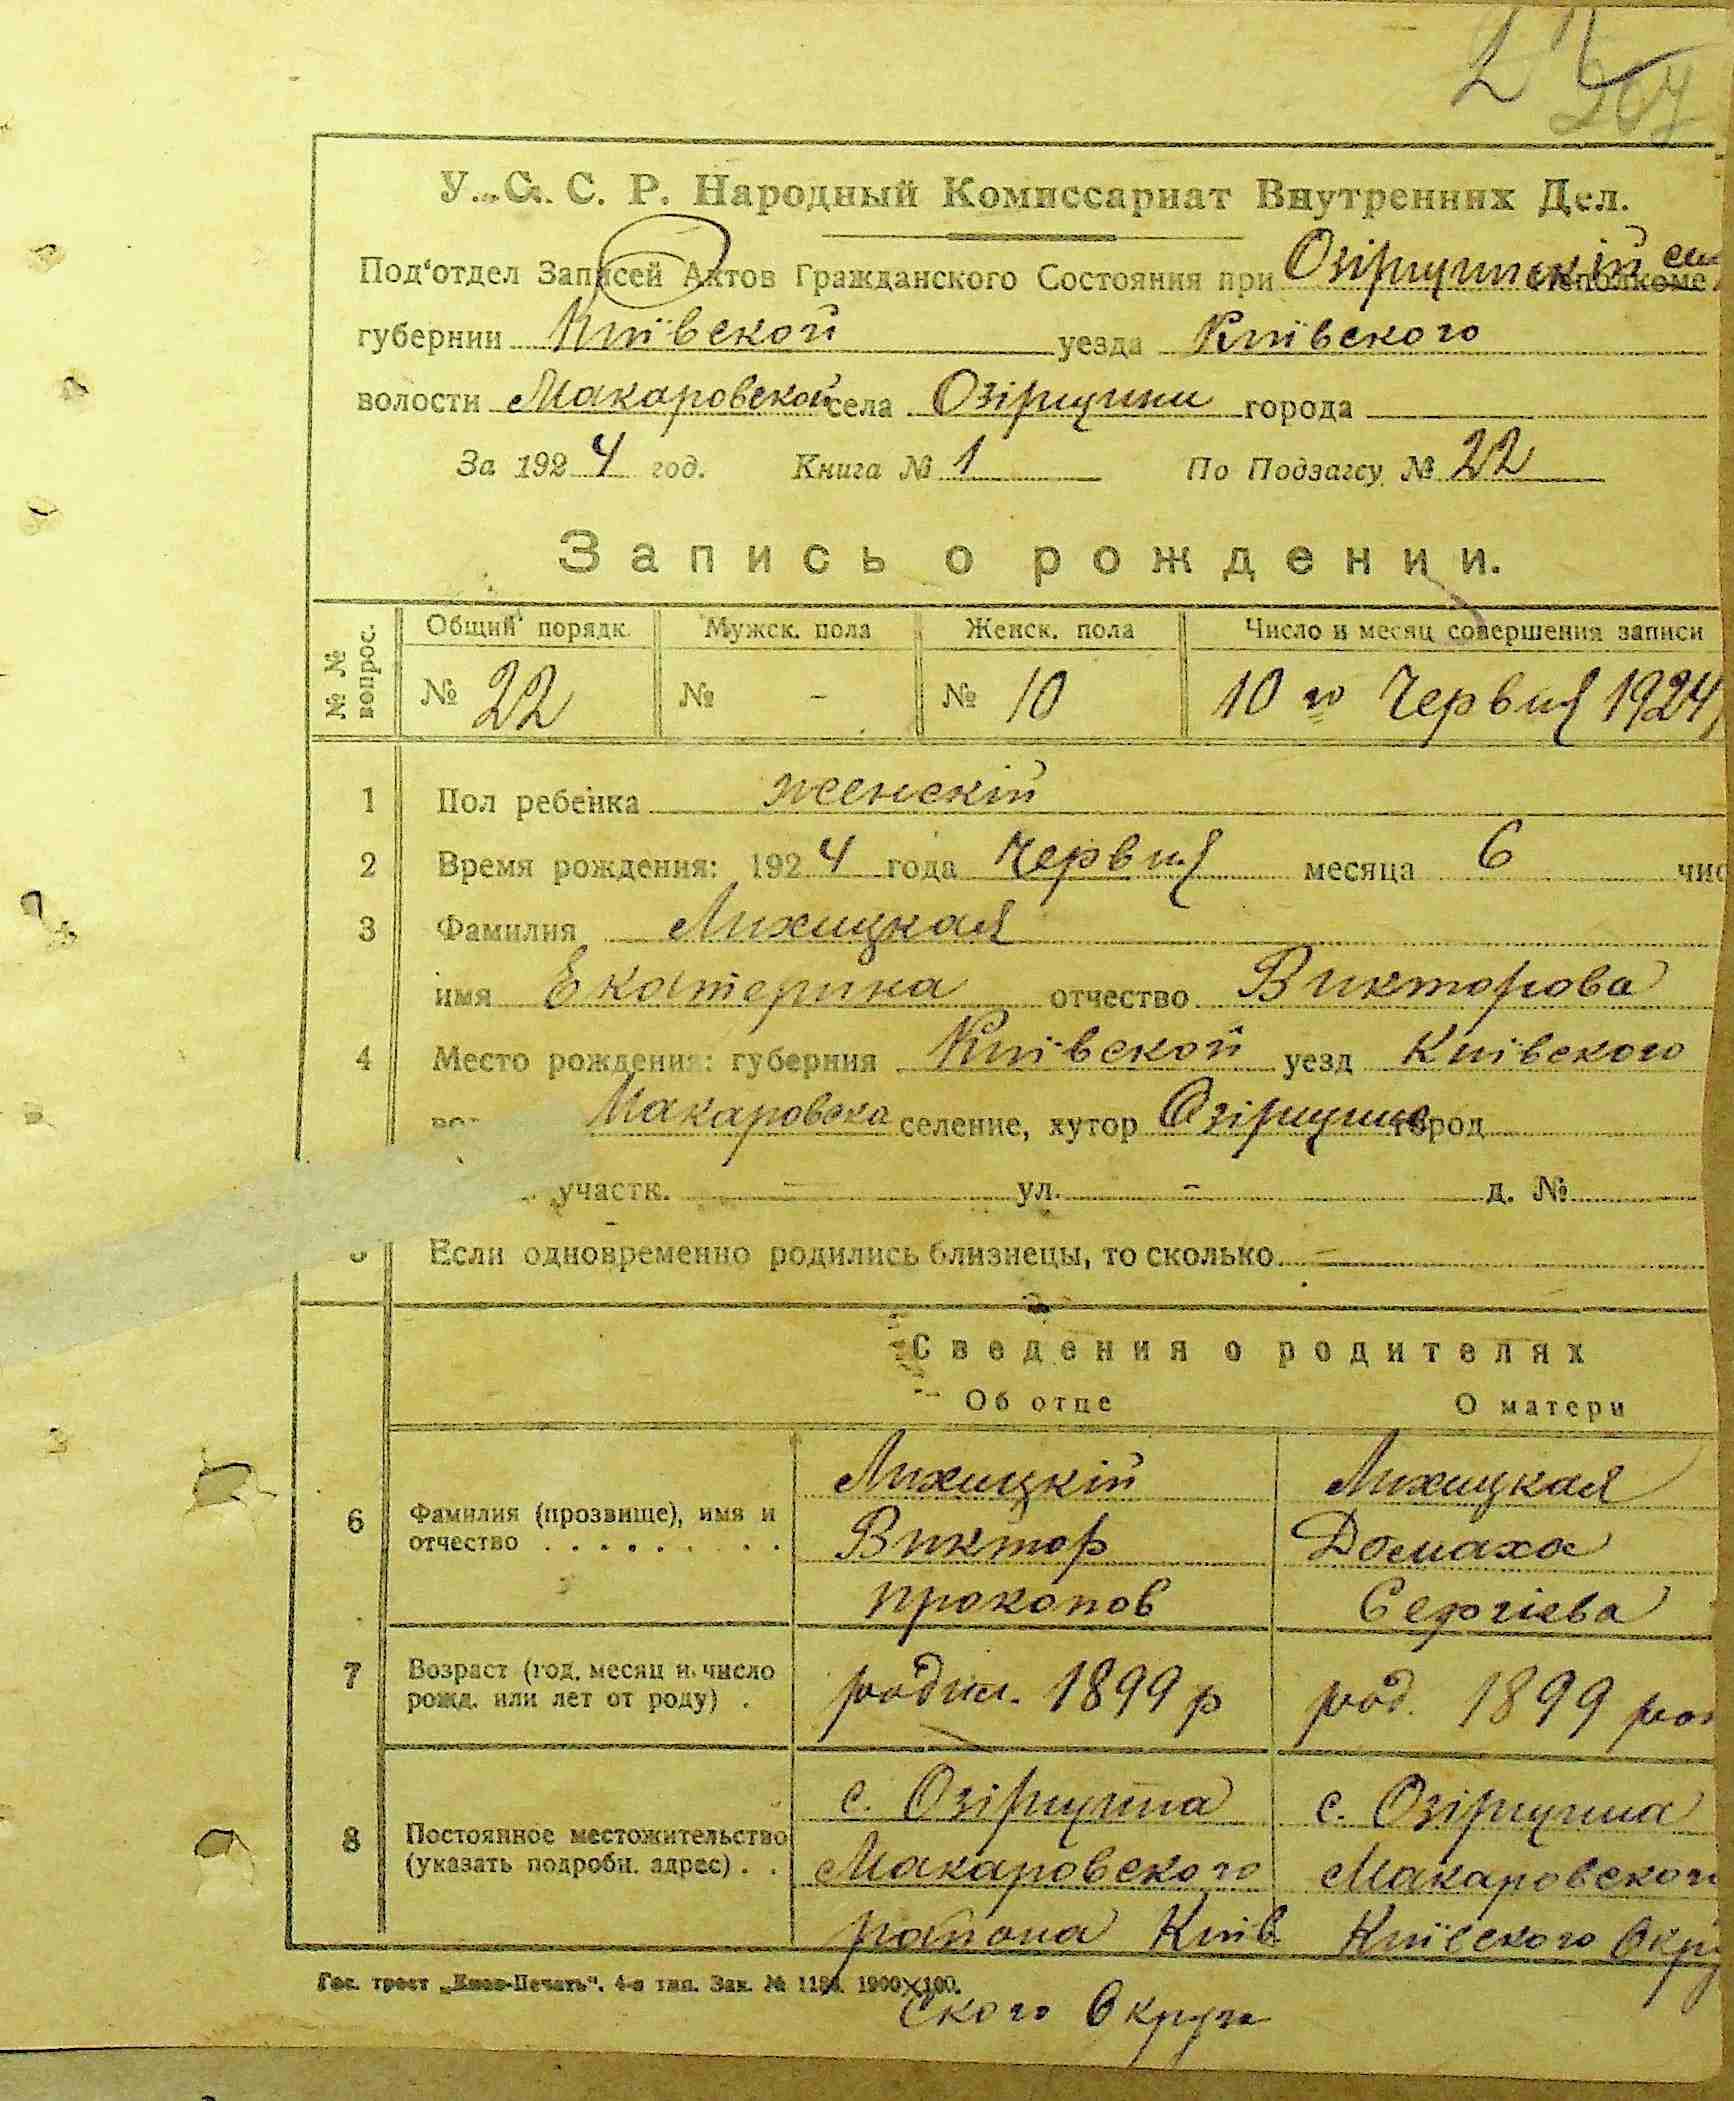 У. С. С. Р. Народный Комиссариат Внутренних Дел.
Под‘отдел Записей Актов Гражданского Состояния при Озірщинскій исполкоме
губернии Киівской уезда Киівского
волости Макаровской села Озірщини города
За 1924 год. Книга № 1 По Подзагсу № 22
Запись о рождении.
№ № вопрос. Общий порядк. Мужск. пола Женск. пола Число и месяц совершения записи
№ 22 № - № 10 10 го Червня 1924
1 Пол ребенка женскій
2 Время рождения: 1924 года Червня месяца 6 чис
3 Фамилия Лихицкая
имя Екатерина отчество Викторова
4 Место рождения: губерния Киівской уезд Киівского
Макаровска селение, хутор Озірщина город
участк. — ул. - д. №
5 Если одновременно родились близнецы, то сколько —
Сведения о родителях
Об отце О матери
6 Фамилия (прозвище), имя и отчество Лихицкій Лихицкая
Виктор Домаха
Прокопов Сергіева
7 Возраст (год, месяц и число рожд. или лет от роду) родил. 1899 р род. 1899
8 Постоянное местожительство (указать подробн. адрес) с. Озірщина с. Озірщина
Макаровского Макаровского
района Киів Киівского Окру
ского Округа
Гос. трест „Киев-Печать“. 4-я тип. Зак. № 1184. 1900×100.